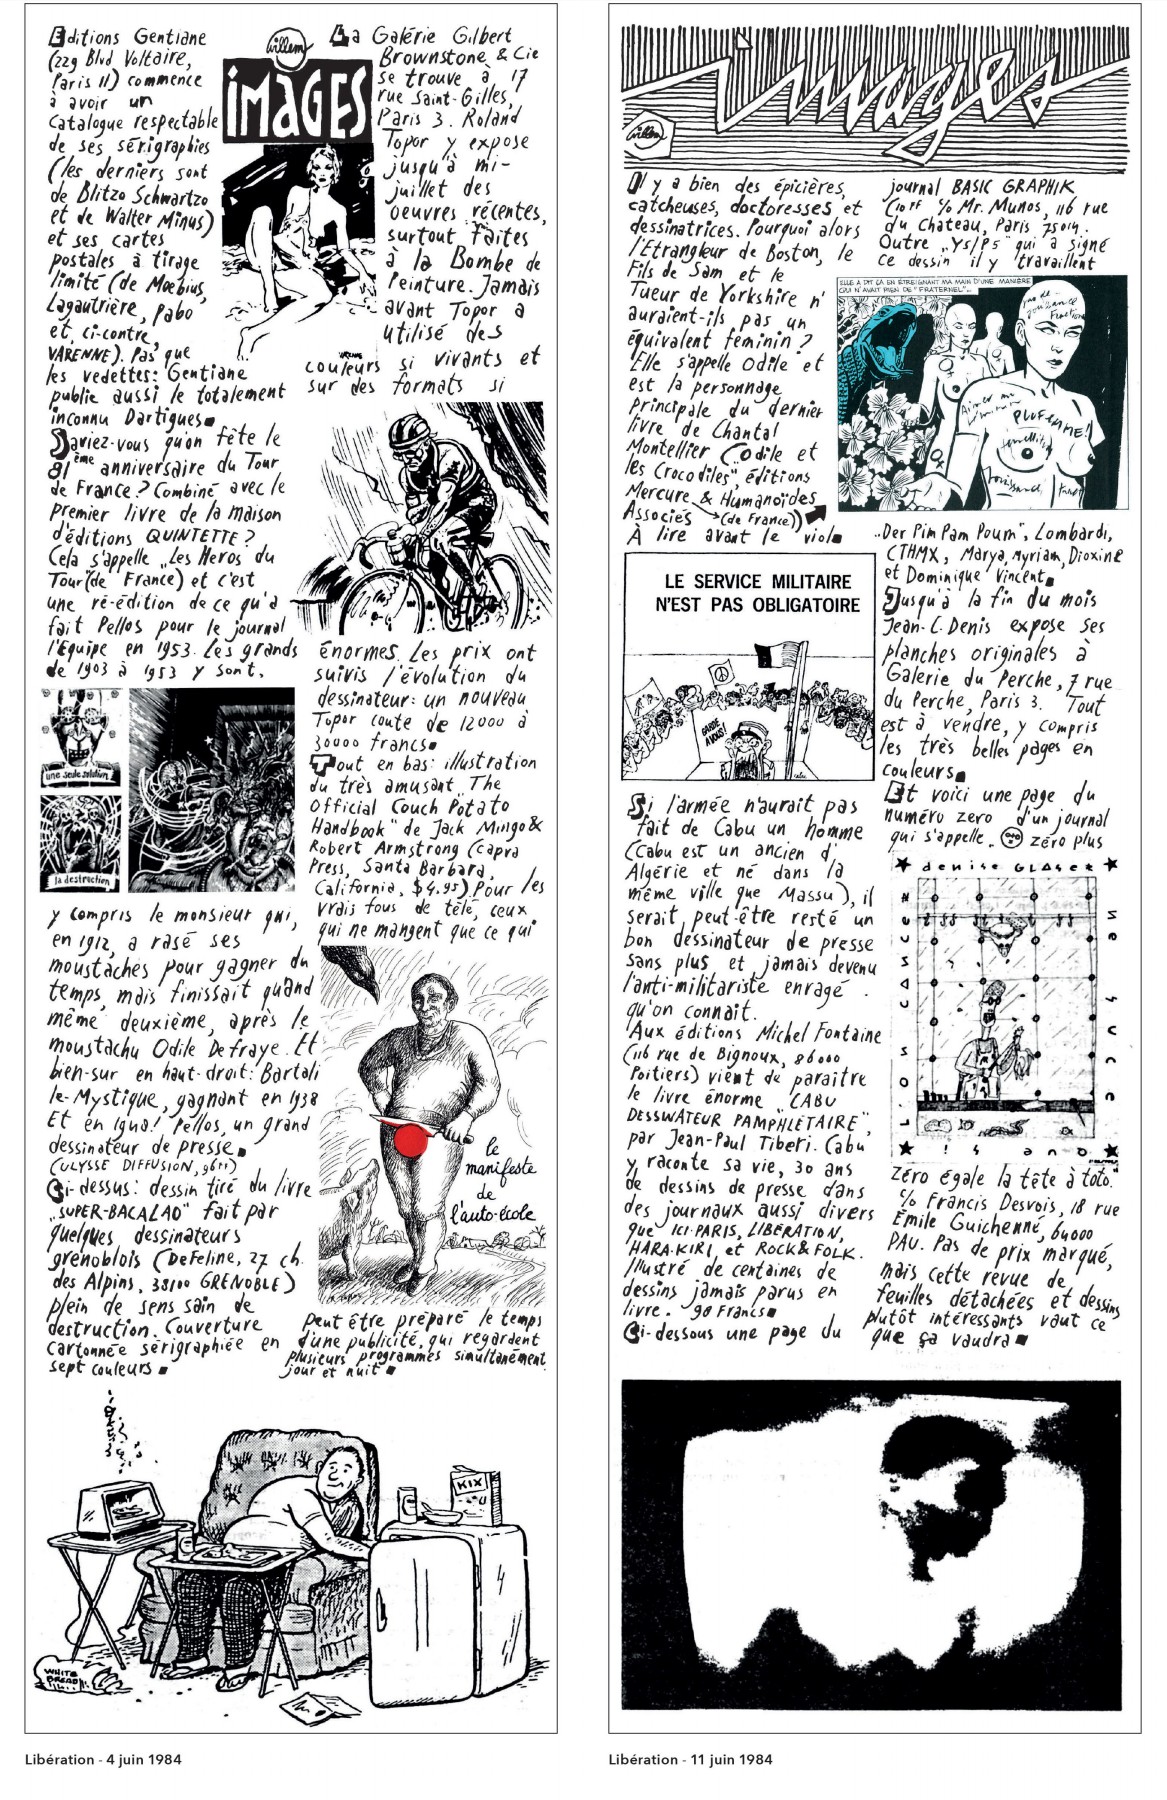 Editions Gentiane
(229 Blvd Voltaire,
Paris 11) commence
à avoir un
catalogue respectable
de ses sérigraphies
(les derniers sont
de Blitzo Schwartzo
et de Walter Minus)
et ses cartes
postales à tirage
limité (de Moebius,
Lagautrière, Pabo
et, ci-contre,
VARENNE). Pas que
les vedettes: Gentiane
publie aussi le totalement
inconnu Dartigues
Saviez-vous qu'on fête le
81ème anniversaire du Tour
de France? Combiné avec le
premier livre de la maison
d'éditions QUINTETTE?
Cela s'appelle „Les Heros du
Tour" (de France) et c'est
une ré-édition de ce qu'a
fait Pellos pour le journal
l'Equipe en 1953. Les grands
de 1903 à 1953 y sont,
une seule solution
la destruction
y compris le monsieur qui,
en 1912, a rasé ses
moustaches pour gagner du
temps, mais finissait quand
même deuxième, après le
moustachu Odile Defraye. Et
bien-sur en haut-droit: Bartali
le-Mystique, gagnant en 1938
Et en 1948! Pellos, un grand
dessinateur de presse
(ULYSSE DIFFUSION, 96FF)
Ci-dessus: dessin tiré du livre
„SUPER-BACALAO" fait par
quelques dessinateurs
grenoblois (DeFeline, 27 ch.
des Alpins, 38100 GRENOBLE)
plein de sens sain de
destruction. Couverture
cartonnée sérigraphiée en
sept couleurs
willem
IMAGES
La Galérie Gilbert
Brownstone & Cie
se trouve à 17
rue Saint-Gilles,
Paris 3. Roland
Topor y expose
jusqu'à mi-
juillet des
oeuvres récentes,
surtout faites
à la Bombe de
Peinture. Jamais
avant Topor a
utilisé des
couleurs si vivants et
sur des formats si
énormes. Les prix ont
suivis l'évolution du
dessinateur: un nouveau
Topor coute de 12000 à
30000 francs
Tout en bas: illustration
du très amusant „The
Official Couch Potato
Handbook" de Jack Mingo &
Robert Armstrong (Capra
Press, Santa Barbara,
California, $4,95) Pour les
vrais fous de télé, ceux
qui ne mangent que ce qui
le
manifeste
de
l'auto-école
peut être préparé le temps
d'une publicité, qui regardent
plusieurs programmes simultanément
jour et nuit
KIX
WHITE
BREAD
Libération - 4 juin 1984
images
willem
Il y a bien des épicières,
catcheuses, doctoresses et
dessinatrices. Pourquoi alors
l'Etrangleur de Boston, le
Fils de Sam et le
Tueur de Yorkshire n'
auraient-ils pas un
équivalent féminin?
Elle s'appelle Odile et
est la personnage
principale du dernier
livre de Chantal
Montellier („Odile et
les Crocodiles", éditions
Mercure & Humanoïdes
Associés (de France))
À lire avant le viol
LE SERVICE MILITAIRE
N'EST PAS OBLIGATOIRE
GARDE
A VOUS!
CABU
Si l'armée n'aurait pas
fait de Cabu un homme
(Cabu est un ancien d'
Algérie et né dans la
même ville que Massu), il
serait, peut-être resté un
bon dessinateur de presse
sans plus et jamais devenu
l'anti-militariste enragé
qu'on connait.
Aux éditions Michel Fontaine
(116 rue de Bignoux, 86000
Poitiers) vient de paraître
le livre énorme "CABU
DESSINATEUR PAMPHLETAIRE",
par Jean-Paul Tiberi. Cabu
y raconte sa vie, 30 ans
de dessins de presse dans
des journaux aussi divers
que ICI-PARIS, LIBERATION,
HARA-KIRI, et ROCK&FOLK.
Illustré de centaines de
dessins jamais parus en
livre. 98 Francs
Ci-dessous une page du
journal BASIC GRAPHIK
(10FF % Mr. Munos, 116 rue
du Chateau, Paris 75014.
Outre „Ys/P5" qui a signé
ce dessin il y travaillent
ELLE A DIT ÇA EN ÉTREIGNANT MA MAIN D'UNE MANIÈRE
QUI N'AVAIT RIEN DE "FRATERNEL"...
„Der Pim Pam Poum", Lombardi,
CTHMX, Marya, Myriam, Dioxine
et Dominique Vincent
Jusqu'à la fin du mois
Jean-C. Denis expose ses
planches originales à
Galerie du Perche, 7 rue
du Perche, Paris 3. Tout
est à vendre, y compris
les très belles pages en
couleurs
Et voici une page du
numéro zero d'un journal
qui s'appelle „ zéro plus
denise GLASER
LIOS CASSER
15 ans
Zéro égale la tête à toto."
c/o Francis Desvois, 18 rue
Émile Guichenné, 64000
PAU. Pas de prix marqué,
mais cette revue de
feuilles détachées et dessins
plutôt intéressants vaut ce
que ça vaudra
Libération - 11 juin 1984